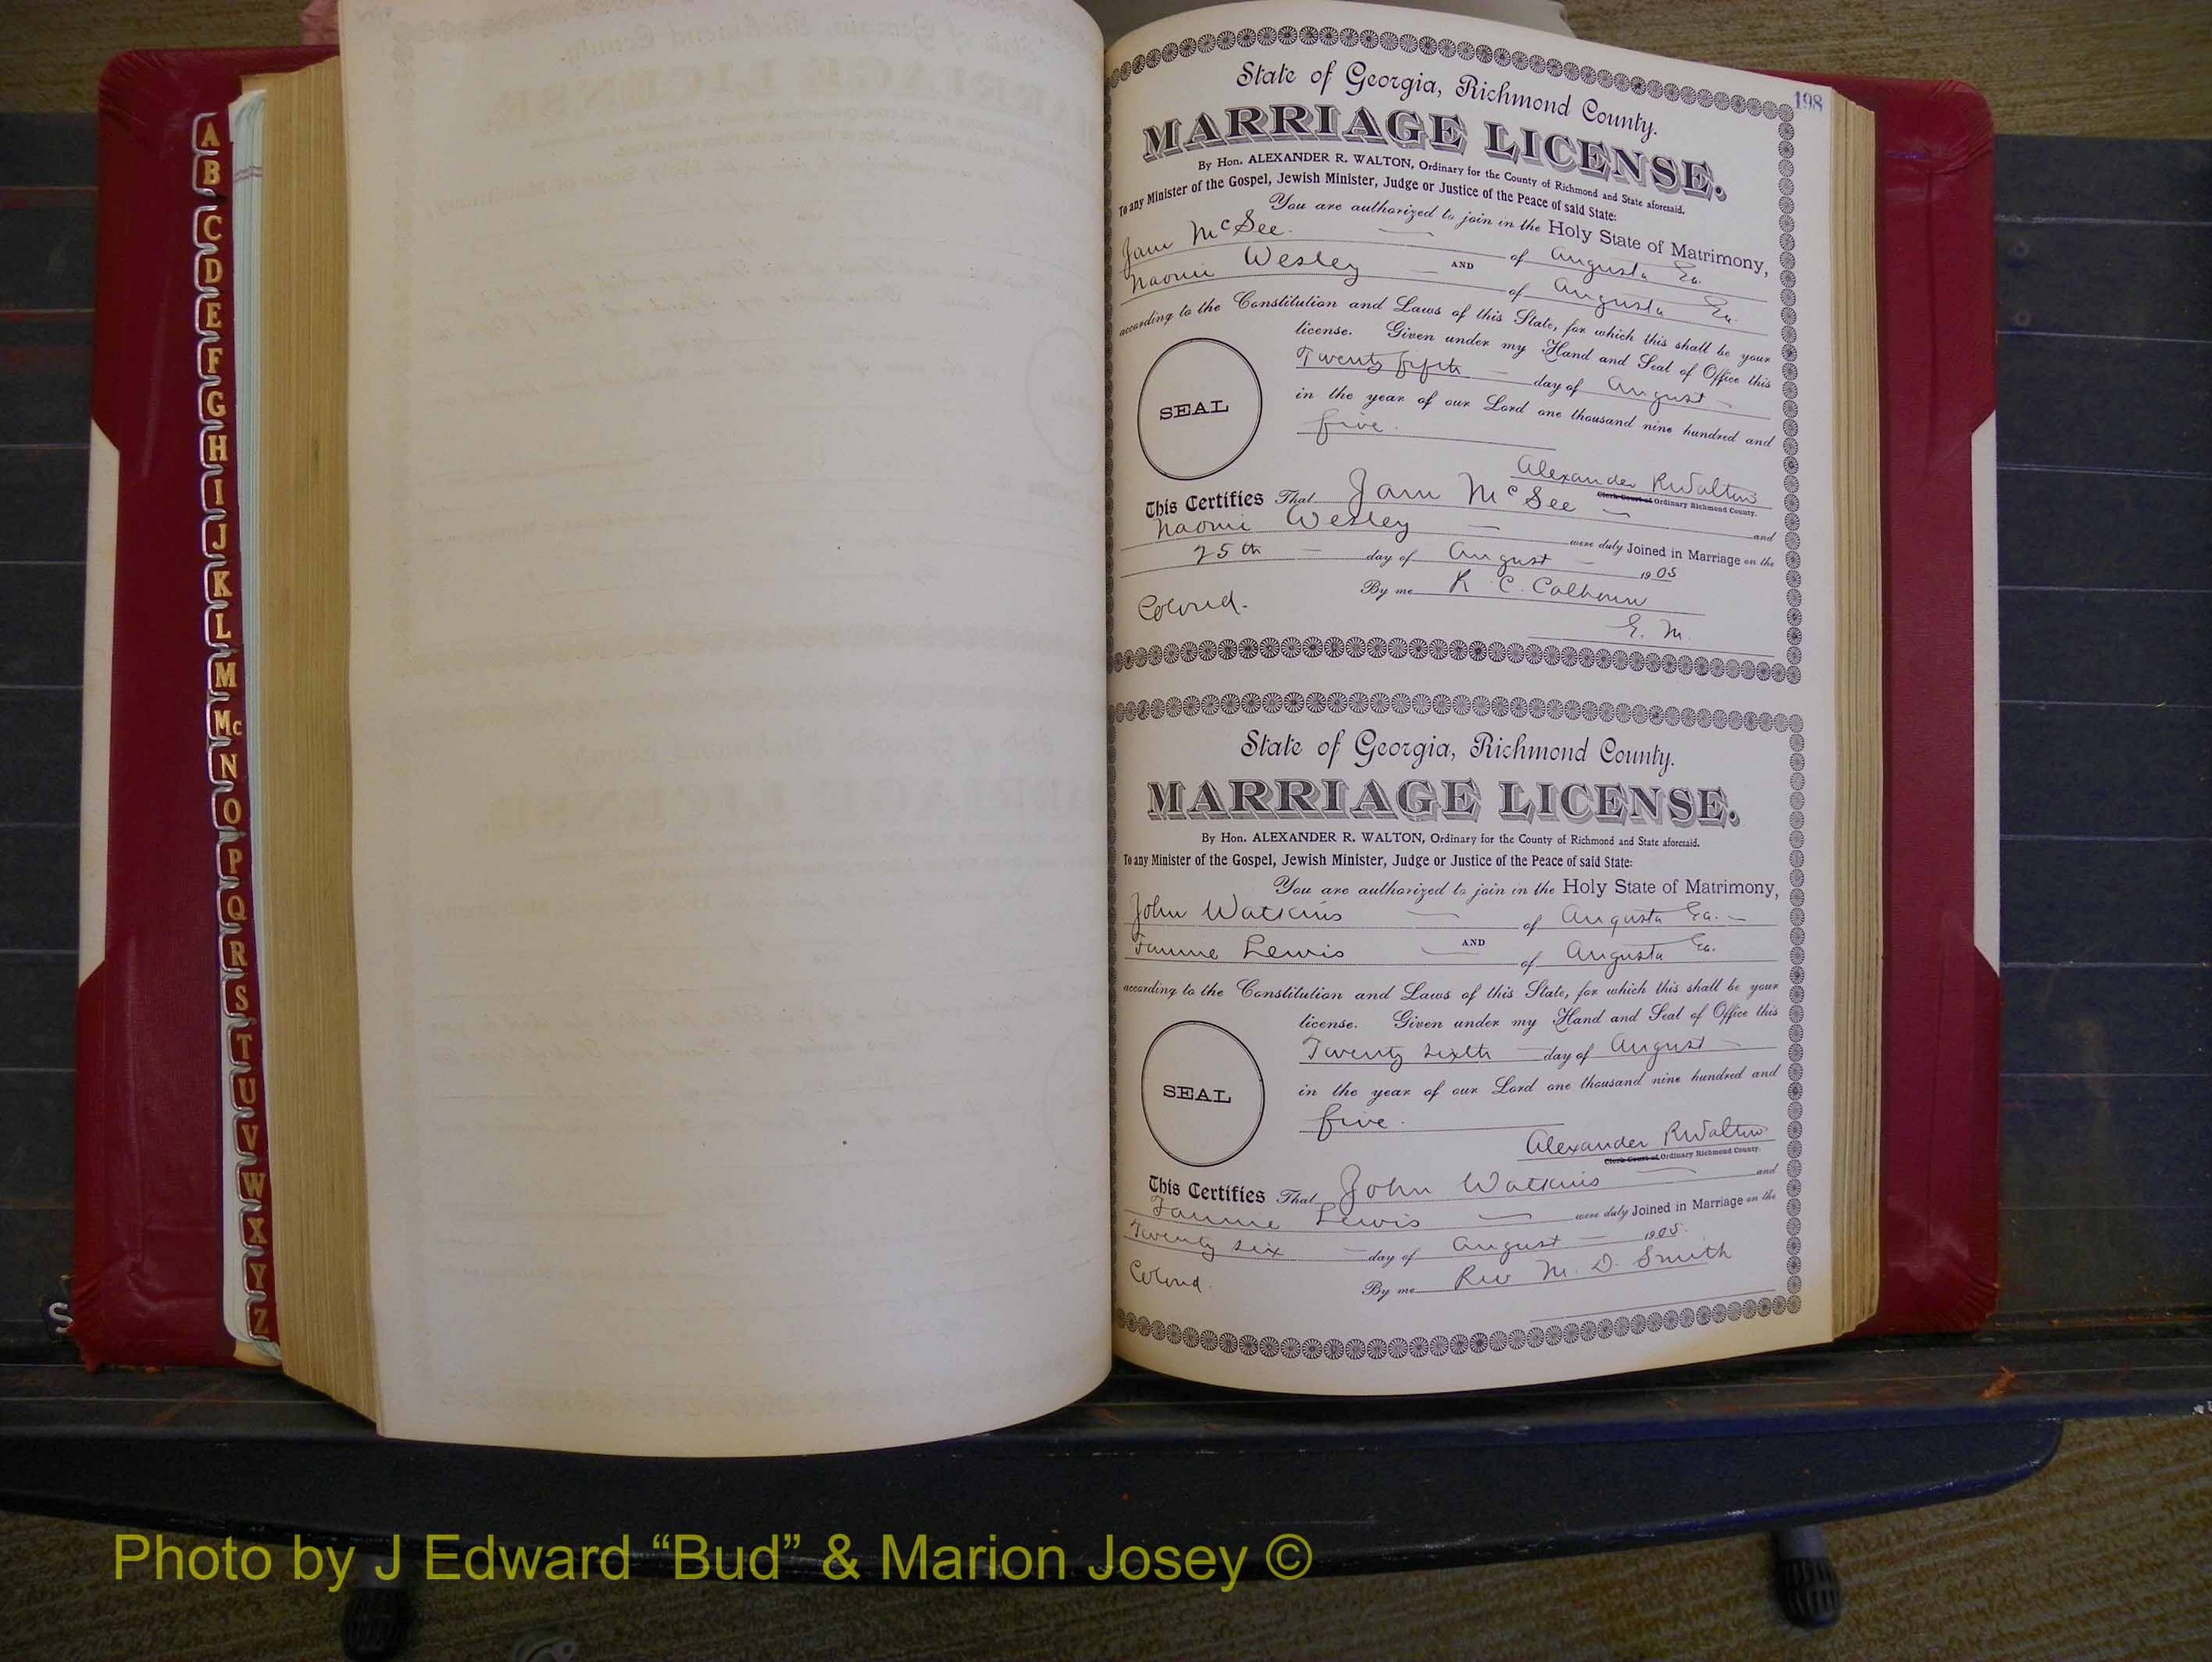 A
B
C
D
E
F
G
H
I
J
K
L
M
Mc
N
O
P
Q
R
S
T
U
V
W
X
Y
Z
198
State of Georgia, Richmond County.
MARRIAGE LICENSE.
By Hon. ALEXANDER R. WALTON, Ordinary for the County of Richmond and State aforesaid.
To any Minister of the Gospel, Jewish Minister, Judge or Justice of the Peace of said State:
You are authorized to join in the Holy State of Matrimony,
McGee. of Augusta Ga.
AND
Naomi Wesley of Augusta Ga.
according to the Constitution and Laws of this State, for which this shall be your
license. Given under my Hand and Seal of Office this
Twenty fifth day of August
in the year of our Lord one thousand nine hundred and
five.
SEAL
Alexander R Walton
Clerk Court of Ordinary Richmond County.
This Certifies That McGee and
Naomi Wesley were duly Joined in Marriage on the
25th day of August 1905
By me R C. Calhoun
Colored.
G. M.
State of Georgia, Richmond County.
MARRIAGE LICENSE.
By Hon. ALEXANDER R. WALTON, Ordinary for the County of Richmond and State aforesaid.
To any Minister of the Gospel, Jewish Minister, Judge or Justice of the Peace of said State:
You are authorized to join in the Holy State of Matrimony,
John Watkins of Augusta Ga.
AND
Fannie Lewis of Augusta Ga.
according to the Constitution and Laws of this State, for which this shall be your
license. Given under my Hand and Seal of Office this
Twenty sixth day of August
in the year of our Lord one thousand nine hundred and
five.
SEAL
Alexander R Walton
Clerk Court of Ordinary Richmond County.
This Certifies That John Watkins and
Fannie Lewis were duly Joined in Marriage on the
Twenty six day of August 1905.
Colored.
By me Rev M. D. Smith
Photo by J Edward “Bud” & Marion Josey ©